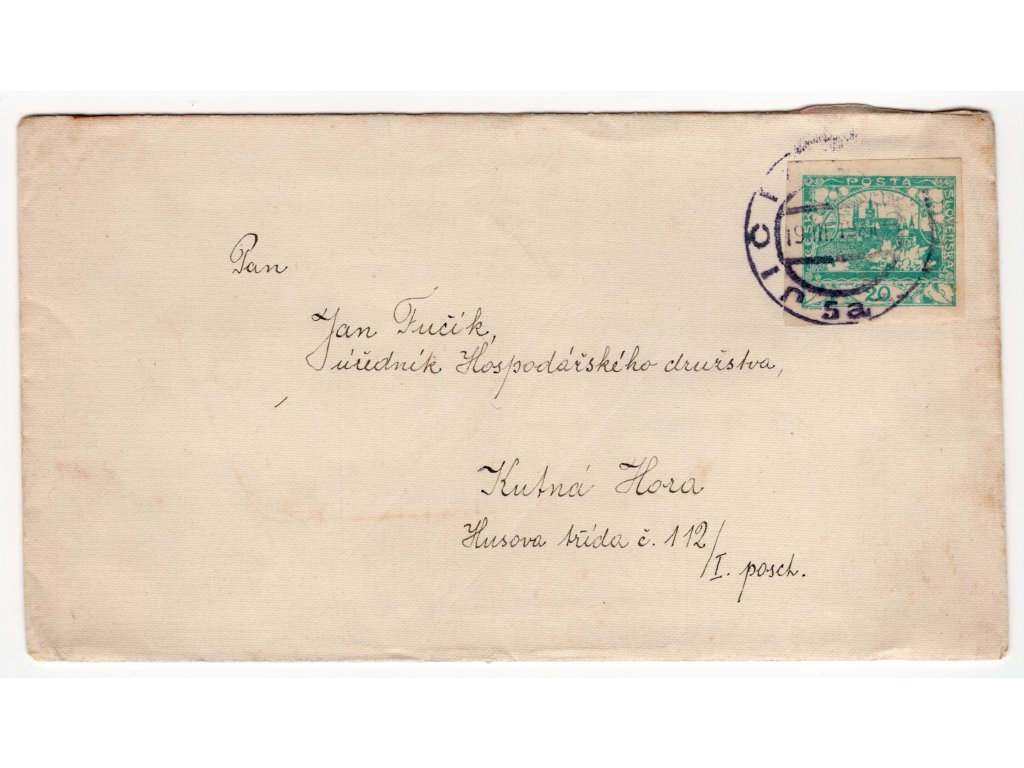 POŠTA
ČESKO
SLOVENSKÁ
20
JIČÍ
5a
Pan
Jan Fučík,
úředník Hospodářského družstva,
Kutná Hora
Husova třída č. 112/
I. posch.